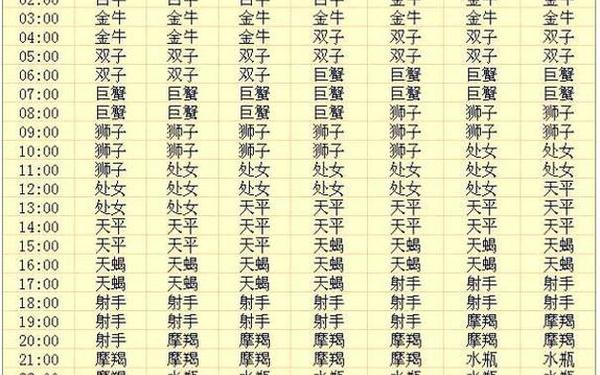 03:00 金牛 金牛 金牛 金牛 金牛 金牛 金牛
04:00 金牛 金牛 金牛 双子 双子 双子 双子
05:00 双子 双子 双子 双子 双子 双子 双子
06:00 双子 双子 双子 巨蟹 巨蟹 巨蟹 巨蟹
07:00 巨蟹 巨蟹 巨蟹 巨蟹 巨蟹 巨蟹 巨蟹
08:00 巨蟹 巨蟹 巨蟹 巨蟹 狮子 狮子 狮子
09:00 狮子 狮子 狮子 狮子 狮子 狮子 狮子
10:00 狮子 狮子 狮子 狮子 狮子 处女 处女
11:00 狮子 处女 处女 处女 处女 处女 处女
12:00 处女 处女 处女 处女 处女 处女 天平
13:00 处女 处女 天平 天平 天平 天平 天平
14:00 天平 天平 天平 天平 天平 天平 天平
15:00 天平 天平 天平 天蝎 天蝎 天蝎 天蝎
16:00 天蝎 天蝎 天蝎 天蝎 天蝎 天蝎 天蝎
17:00 天蝎 天蝎 天蝎 天蝎 射手 射手 射手
18:00 射手 射手 射手 射手 射手 射手 射手
19:00 射手 射手 射手 射手 射手 摩羯 摩羯
20:00 射手 摩羯 摩羯 摩羯 摩羯 摩羯 摩羯
21:00 摩羯 摩羯 摩羯 摩羯 摩羯 水瓶 水瓶